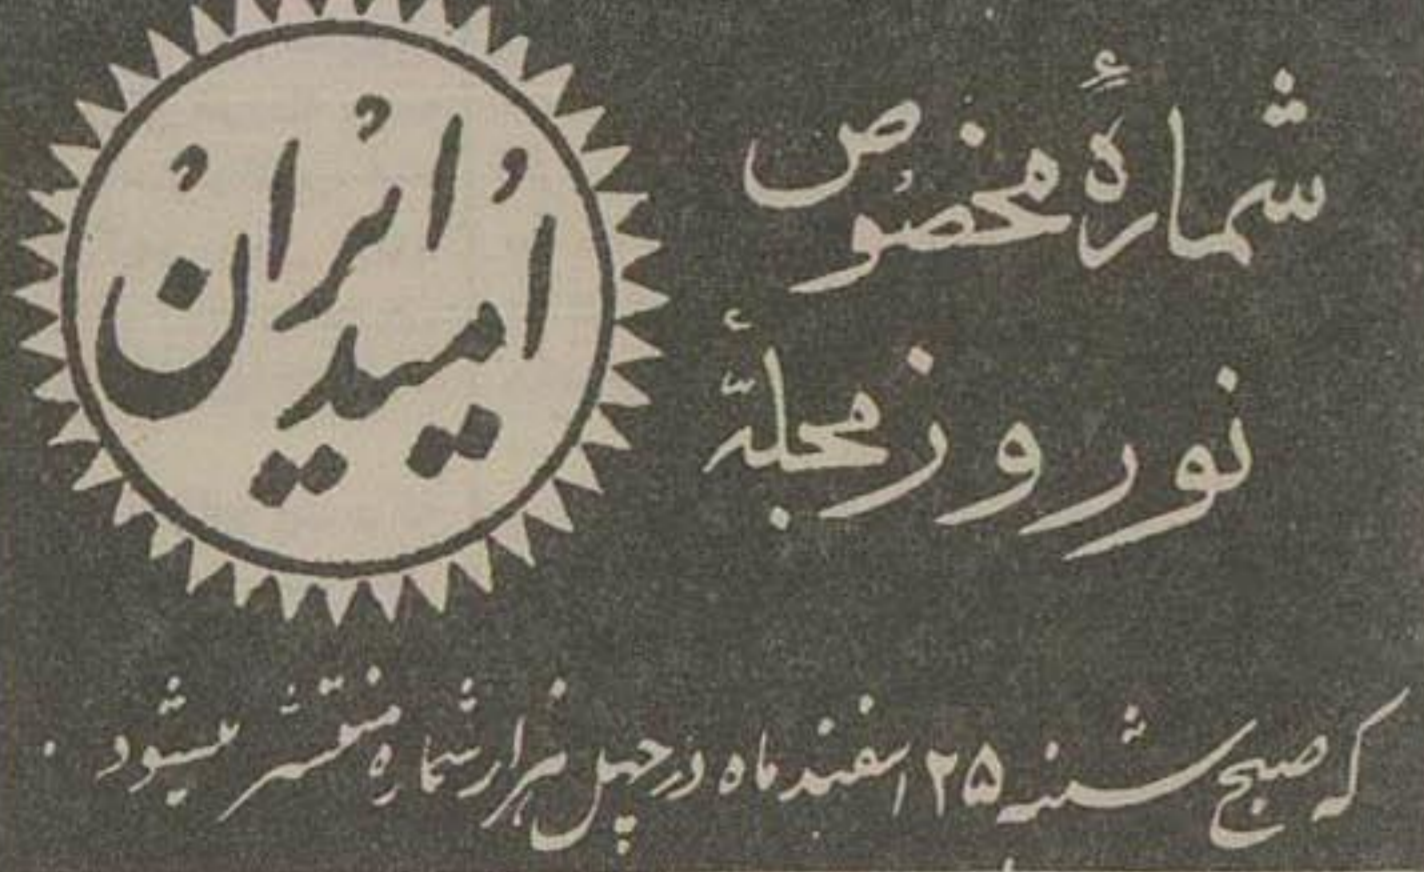 شمارهٔ مخصوص
نوروز مجلهٔ
امید ایران
که صبح شنبه ۲۵ اسفند ماه در چهل هزار شماره منتشر میشود .